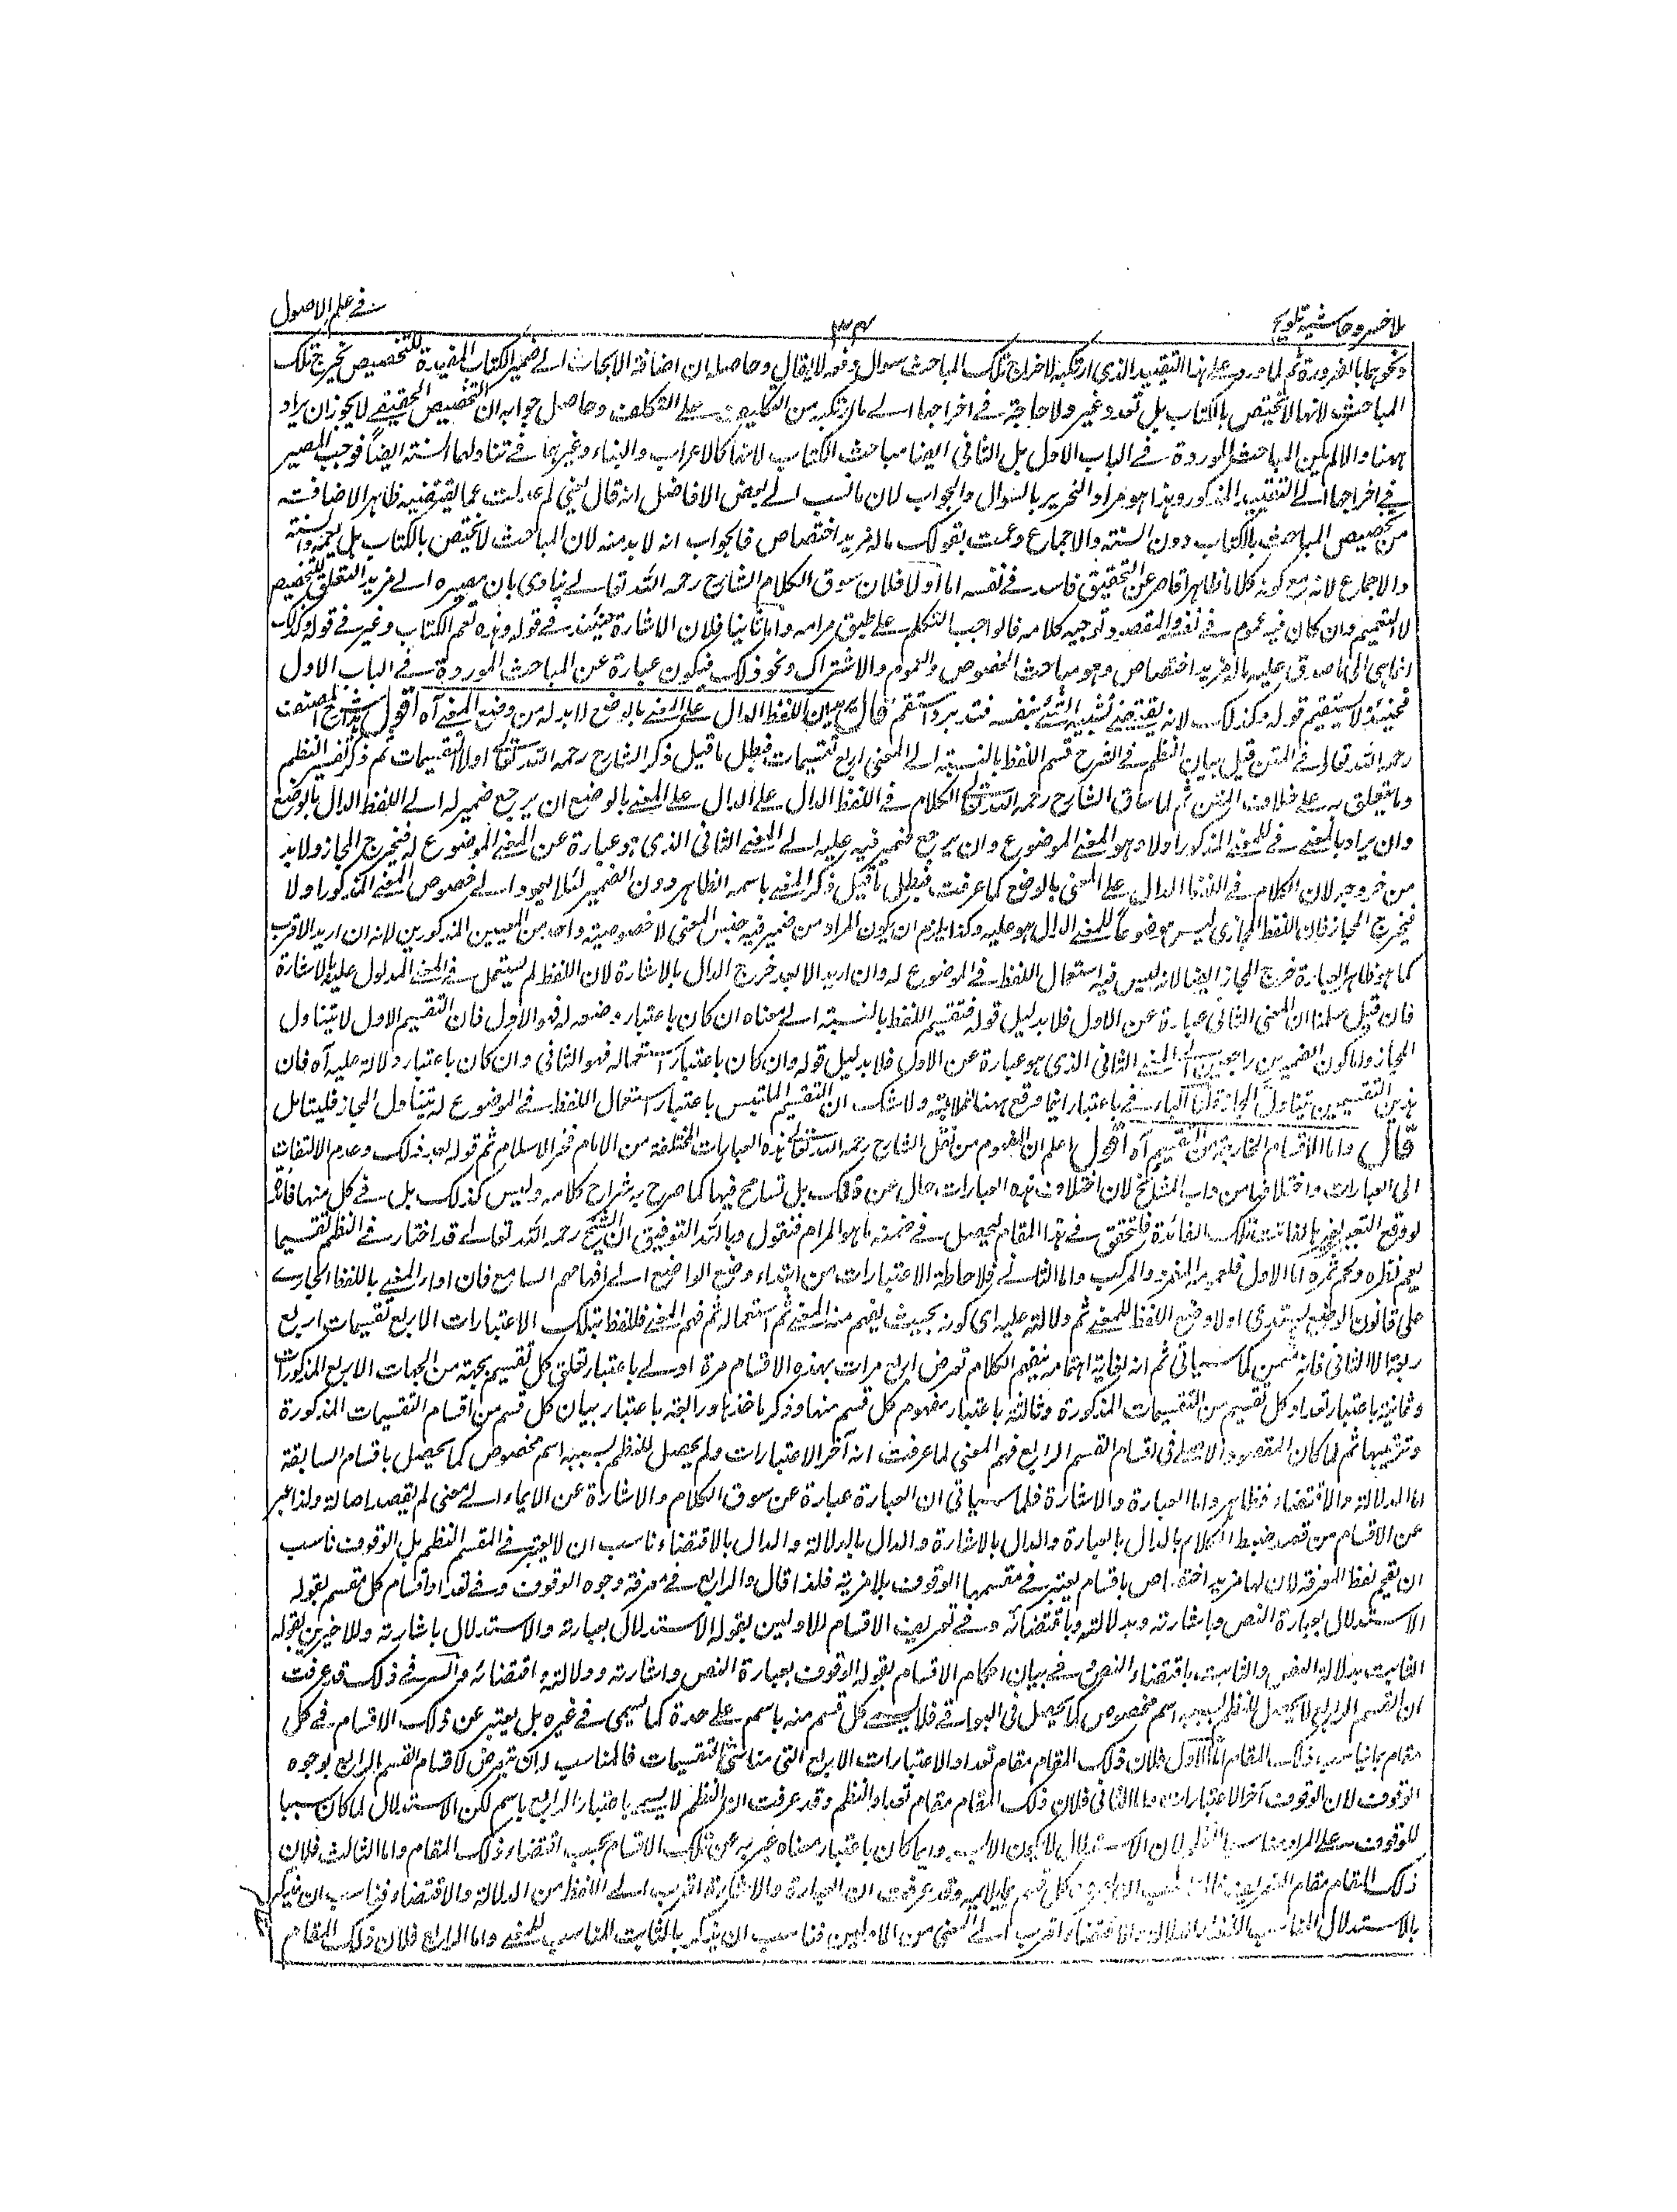 ملا خسرو حاشیة تلویح
۳۴
فے علم الاصول
ونحوهما بالضرورة ثم لما ورد علے هذا التقييد الذي ارتكبه لاخراج تلك المباحث سوال دفعه لا يقال وحاصله ان اضافة الابحاث الے ضمير الكتاب المفيدة للتخصيص تخرج تلك
المباحث لانها لا تختص بالكتاب بل تعمه وغيره ولا حاجة فے اخراجها الے ما ارتكبه من التكلف وحاصل جوابه ان التخصيص الحقيقے لا يجوز ان يراد
ههنا والا لم يكن المباحث الموردة فے الباب الاول بل الثانى ايضا مباحث الكتاب لانها كالاعراب والبناء وغيرهما فے تناولها السنة ايضاً فوجب المصير
فے اخراجها الے التقييد المذكور وهذا هو مراد النحرير بالسوال والجواب لان ما نسب الے بعض الافاضل انه قال يعني لم عدلت عما يقتضيه ظاهر الاضافة
من تخصيص المباحث بالكتاب دون السنة والاجماع وعممت بقولك ما له مزيد اختصاص فالجواب انه لا بد منه لان المباحث لا تختص بالكتاب بل يعمه والسنة
والاجماع لانه مع كونه كلاما ظاهرا قاصر عن التحقيق فاسد فے نفسه اما اولا فلان سوق الكلام الشارح رحمه الله تعالے ينادى بان مصيره الے مزيد التعلق للتخصيص
لا التعميم وان كان فيه عموم فے نفسه المقصد وتوجيه كلامه فالواجب التكلم علے طبق مرامه واما ثانيا فلان الاشارة حينئذ فے قوله وهذه تعم الكتاب وغيره فے قوله وكذلك
انما هى الى ما صدق عليه ما له مزيد اختصاص وهو مباحث الخصوص والعموم والاشتراك ونحو ذلك فيكون عبارة عن المباحث الموردة فے الباب الاول
فحينئذ لا يستقيم قوله وكذلك لانه يقتضے تشبيه الشئ بنفسه فتدبر واستقم قال اللفظ الدال علے المعنے بالوضع لا بد له من وضع المعنے آه اقول المصنف
رحمه الله تعالے فے المتن قبل بيان النظم فے الشرح قسم اللفظ بالنسبة الے المعنى اربع تقسيمات فبطل ما قيل ذكر الشارح رحمه الله تعالے اولا التقسيمات ثم ذكر تفسير النظم
وما يتعلق به علے خلاف المتن ثم لما ساق الشارح رحمه الله تعالے الكلام فے اللفظ الدال علے الدال علے المعنے بالوضع ان يرجع ضمير له الے اللفظ الدال بالوضع
وان يراد بالمعنے فے للمعنے المذكور اولا وهو المعنے الموضوع وان يرجع ضمير فيه عليه الے المعنے الثانى الذى هو عبارة عن المعنے الموضوع له فيخرج المجاز ولا بد
من خروجه لان الكلام فے اللفظ الدال علے المعنى بالوضع كما عرفت فبطل ما قيل ذكر المعنے باسمه الظاهر دون الضمير لئلا يعود الے خصوص المعنے المذكور اولا
فيخرج المجاز فان اللفظ المجازى ليس موضوعاً للمعنے الدال هو عليه وكذا يلزم ان يكون المراد من ضمير فيه جنس المعنى لا خصوصية واحد من المعنيين المذكورين لانه ان اريد الاقرب
كما هو ظاهر العبارة خرج المجاز ايضا لانه ليس فيه استعمال اللفظ فے الموضوع له وان اريد الابعد خرج الدال بالاشارة لان اللفظ لم يستعمل فے المعنے المدلول عليه بالاشارة
فان قيل سلمنا ان المعنى الثانى عبارة عن الاول فلا بدليل قوله فتقسيم اللفظ بالنسبة الے معناه ان كان باعتبار وضعه له فهو الاول فان التقسيم الاول لا يتناول
المجاز واما كون الضميرين راجعين الے المعنے الثانى الذى هو عبارة عن الاول فلا بدليل قوله وان كان باعتبار استعماله فهو الثانى وان كان باعتبار دلالة عليه آه فان
هذين التقسيمين يتناول المجاز قلنا الباء فے باعتبار انما وقع ههنا للملابسة ولا شك ان التقسيم الملتبس باعتبار استعمال اللفظ فے الموضوع له يتناول المجاز فليتامل
قال واما الاقسام الخارجة من التقسيم آه اقول اعلم ان المفهوم من نقل الشارح رحمه الله تعالے هذه العبارات المختلفة من الامام فخر الاسلام ثم قوله بعد ذلك وعدم الالتفات
الى العبارات واختلافها من داب المشائخ لان اختلاف هذه العبارات خال عن بل تسامح فيها كما صرح به شراح كلامه وليس كذلك بل فے كل منها فائدة
لو وقع التعبير بغيرها لفاتت تلك الفائدة فلنحقق فے هذا المقام ليحصل فے ضمنه ما هو المرام فنقول وبالله التوفيق ان الشيخ رحمه الله تعالے قد اختار فے النظم تقسيما
يعم نظره ويحكم ثمره اما الاول فلعمومه المفرد والمركب واما الثانے فلاحاطة الاعتبارات من ابتداء وضع الواضع الے افهام السامع فان اداء المعنے باللفظ الجارے
على قانون الوضع يستدعى اولا وضع اللفظ للمعنے ثم دلالته عليه اى كونه بحيث يفهم منه المعنے ثم استعماله ثم فهم المعنے فللفظ بتلك الاعتبارات الاربع تقسيمات اربع
ربعة الا الثانى فانه ثمن كما سياتى ثم انه لغاية اهتمامه بنظم الكلام تعرض اربع مرات بهذه الاقسام مرة اولے باعتبار تعلق كل تقسيم بجهة من الجهات الاربع المذكورات
وثانية باعتبار تعداد كل تقسيم من التقسيمات المذكورة وثالثة باعتبار مفهوم كل قسم منها وذكر ماخذها ورابعة باعتبار بيان كل قسم من اقسام التقسيمات المذكورة
وترتيبها ثم لما كان المقصود الاصلے فى اقسام القسم الرابع فهم المعنى لما عرفت انه آخر الاعتبارات ولم يحصل للنظم بسببه اسم مخصوص كما يحصل باقسام السابقة
اما الدلالة والاقتضاء فظاهر واما العبارة والاشارة فلما سياتى ان العبارة عبارة عن سوق الكلام والاشارة عن الايماء الے معنى لم يقصد اصالة ولذا عبر
عن الاقسام من قصد ضبط الكلام بالدال بالعبارة والدال بالاشارة والدال بالدلالة والدال بالاقتضاء ناسب ان لا يعتبر فے المقسم النظم بل الوقوف ناسب
ان يقحم لفظ المعرفة لان لها مزيد اختصاص باقسام يعتبر فے مقسمها الوقوف بلا مزية فلذا قال والرابع فے معرفة وجوه الوقوف وفے تعداد اقسام كل مقسم بقوله
الاستدلال بعبارة النص وباشارته وبدلالته وباقتضائه وفے تعريف الاقسام للاولين بقوله الاستدلال بعبارته والاستدلال باشارته وللاخيرين بقوله
الثابت بدلالة النص والثابت باقتضاء النص وفے بيان احكام الاقسام بقوله الوقوف بعبارة النص واشارته ودلالته واقتضائه والسر فے ذلك قد عرفت
ان القسم الرابع لا يحصل للنظم بسببه اسم مخصوص كما يحصل فى البواقے فلا يسمے كل قسم منه باسم علے حدة كما يسمى فے غيره بل يعتبر عن ذلك الاقسام فے كل
مقام بما يناسب ذلك المقام اما الاول فلان ذلك المقام مقام تعداد الاعتبارات الاربع التى منها تنشأ التقسيمات فالمناسب له ان يتعرض لاقسام القسم الرابع بوجوه
الوقوف لان الوقوف آخر الاعتبارات واما الثانى فلان ذلك المقام مقام تعداد النظم وقد عرفت ان النظم لا يسمے باعتبار الرابع باسم لكن الاستدلال لما كان سببا
للوقوف علے المراد مناسبا للنظم لان الاستدلال لا يكون الا به وايما كان باعتبار معناه عبر به عن تلك الاقسام بحسب اقتضاء ذلك المقام واما الثالث فلان
ذلك المقام مقام التعريف كل قسم بما يلائمه وقد عرفت ان العبارة والاشارة اقرب الے اللفظ من الدلالة والاقتضاء فناسب ان يذكر
بالاستدلال المناسب اللفظ والدلالة والاقتضاء اقرب الے المعنى من الاولين فناسب ان يذكر بالثابت المناسب للمعنے واما الرابع فلان ذلك المقام